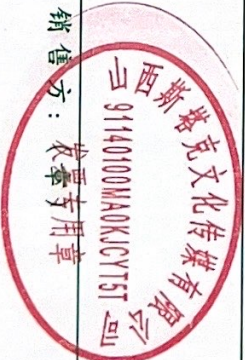 销售方：
山西斯塔克文化传媒有限公司
91140100MA0KJCYT5T
发票专用章